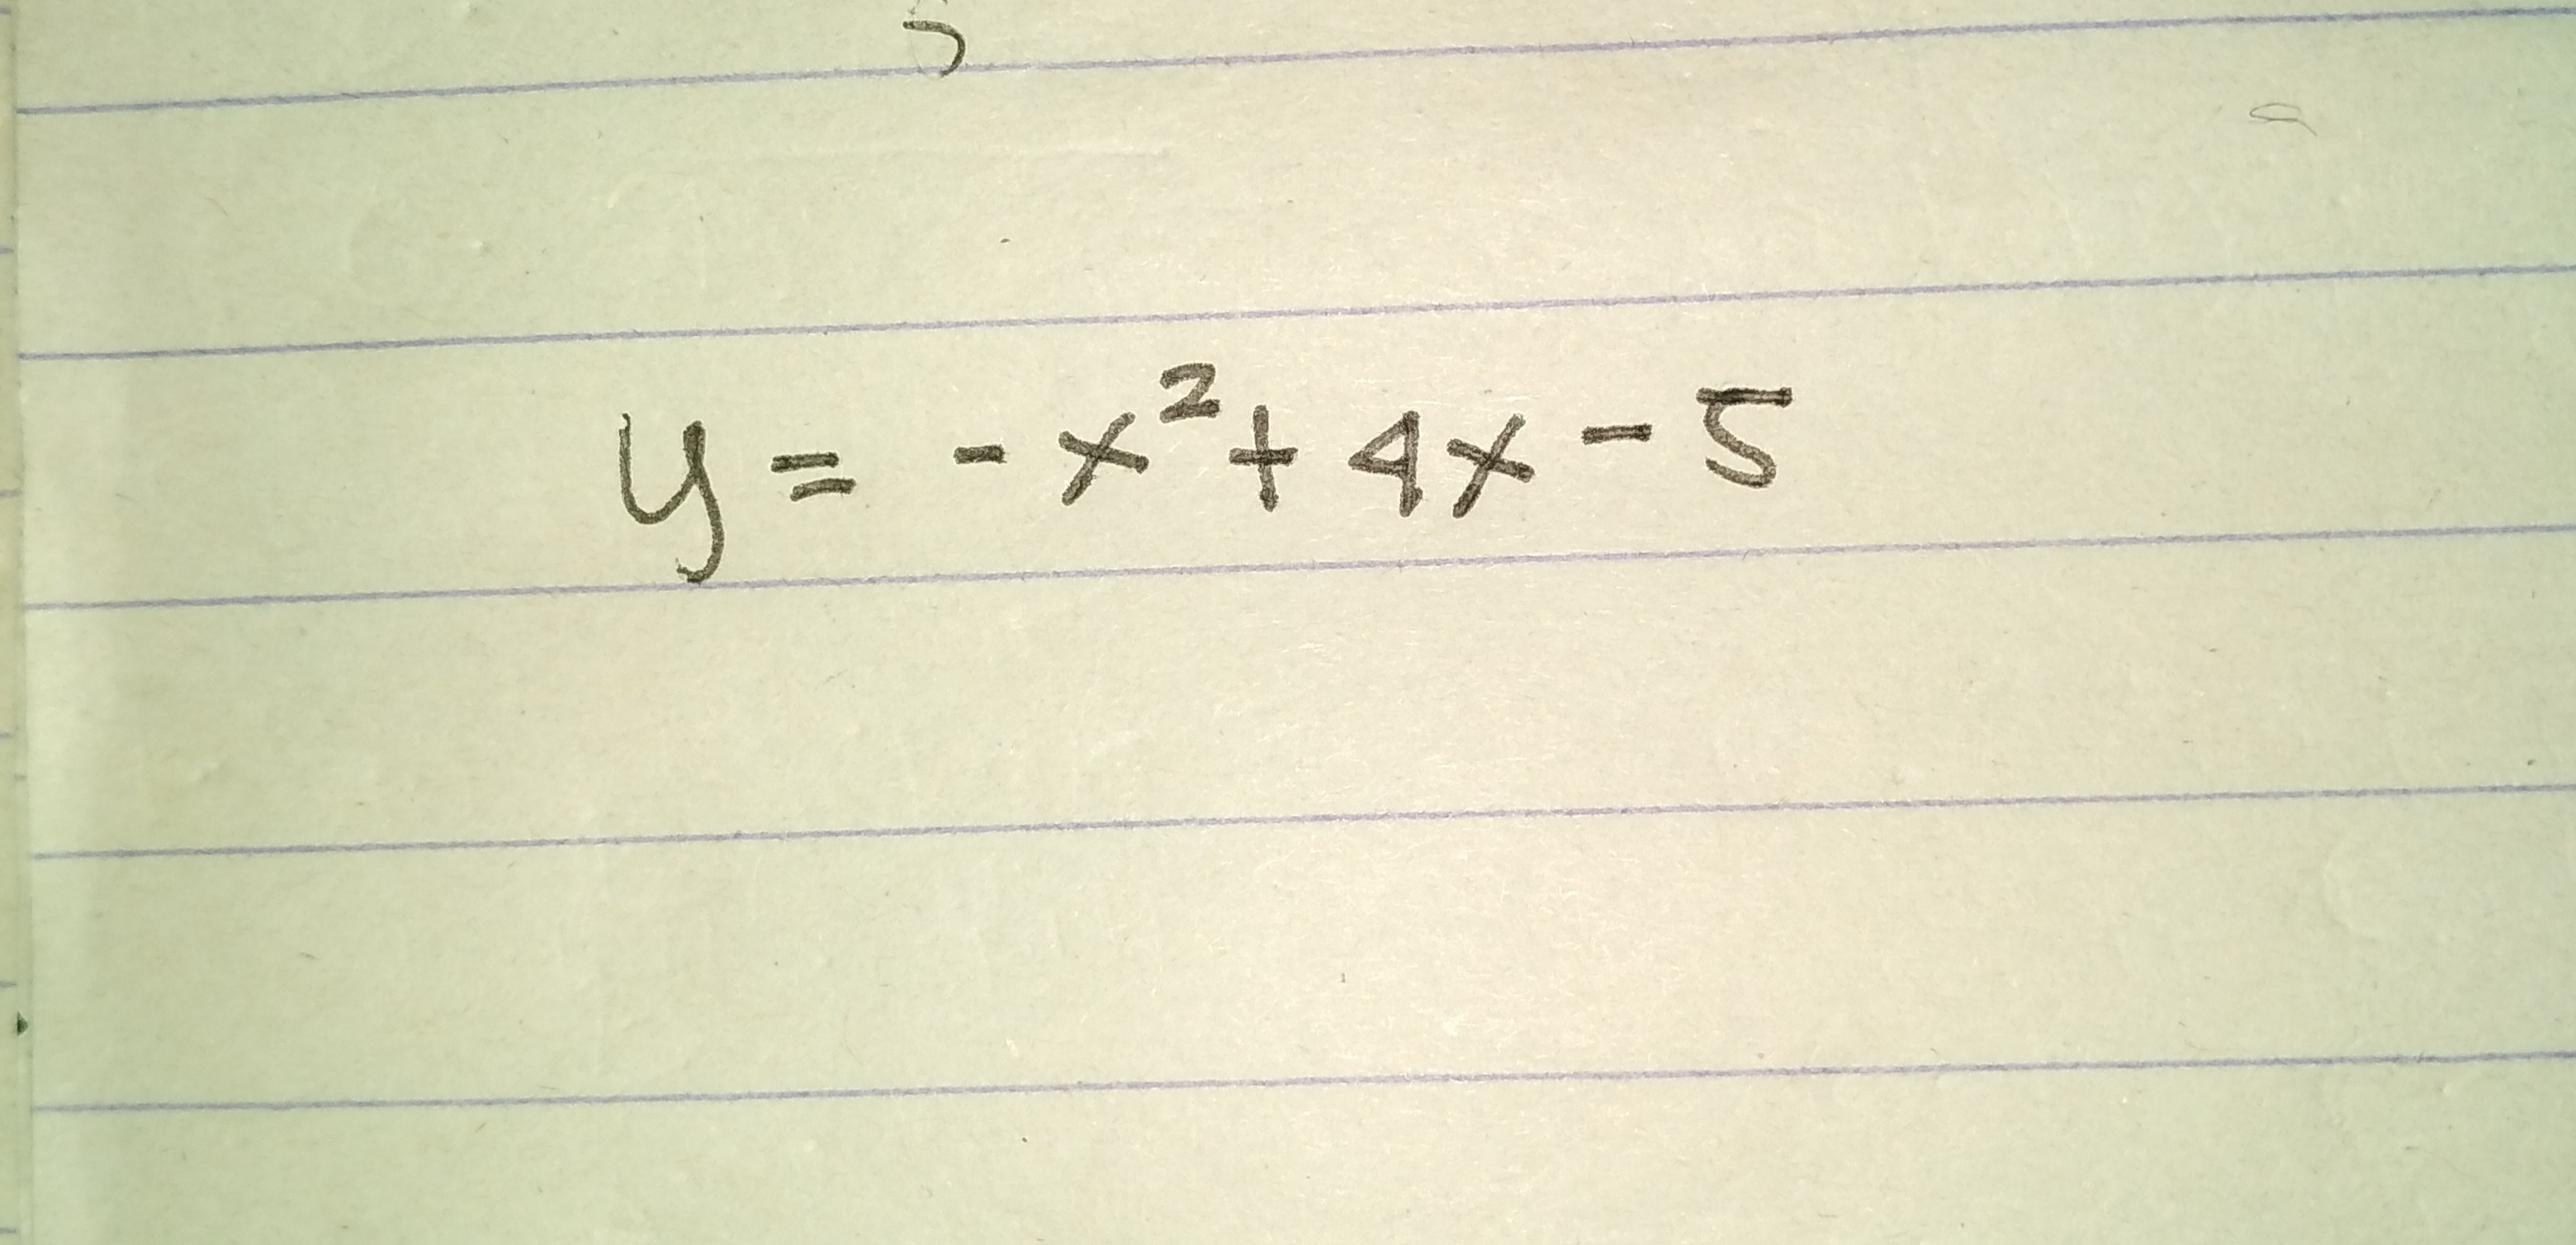 y = - x² + 4x - 5